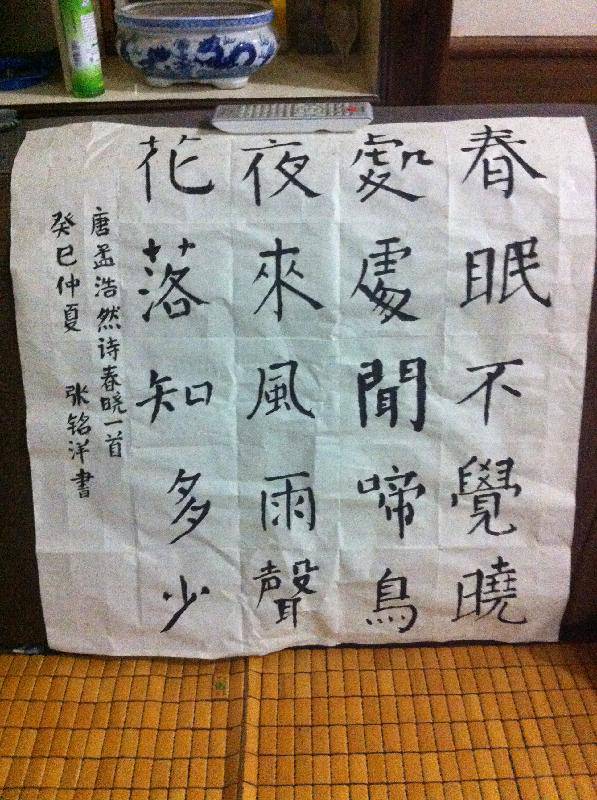 春眠不覺曉
處處聞啼鳥
夜來風雨聲
花落知多少
唐孟浩然诗春晓一首
癸巳仲夏 张铭洋書